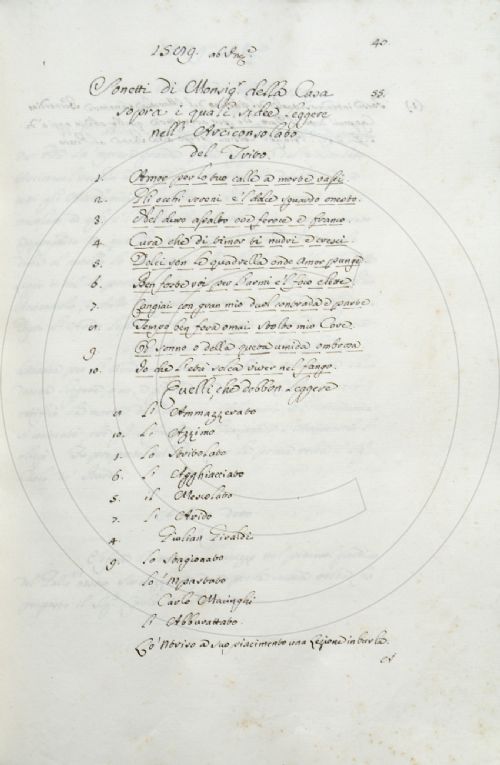 1589. ab Inc.
40.
Sonetti di Monsig.r della Casa
55.
sopra i quali si dee leggere
nell' Arciconsolato
del Trito.
1. Amor per lo tuo calle a morte vassi
2. Gli occhi sereni e 'l dolce sguardo onesto.
3. Nel duro assalto ove feroce e franco.
4. Cura che di timor ti nutri e cresci.
5. Dolci son le quadrella onde Amor punge.
6. Ben foste voi per l'armi e 'l foco elette.
7. Cangiai con gran mio duol contrada e parte.
8. Sempio ben fora omai stolto mio Core.
9 O Sonno o della queta umida ombrosa
10. Io che l'età solea viver nel fango.
Quelli, che debbon leggere
Lo Ammazzerato
10. Lo Azzimo
1. Lo Stritolato
6. L' Agghiacciato
5. il Mescolato
7. L' Arido
4 Giulian Giraldi
9. Lo Stagionato
Lo 'Mpastato
Carlo
L' Abburattato.
Lo 'Ntriso a suo piacimento una Lezione in burla.